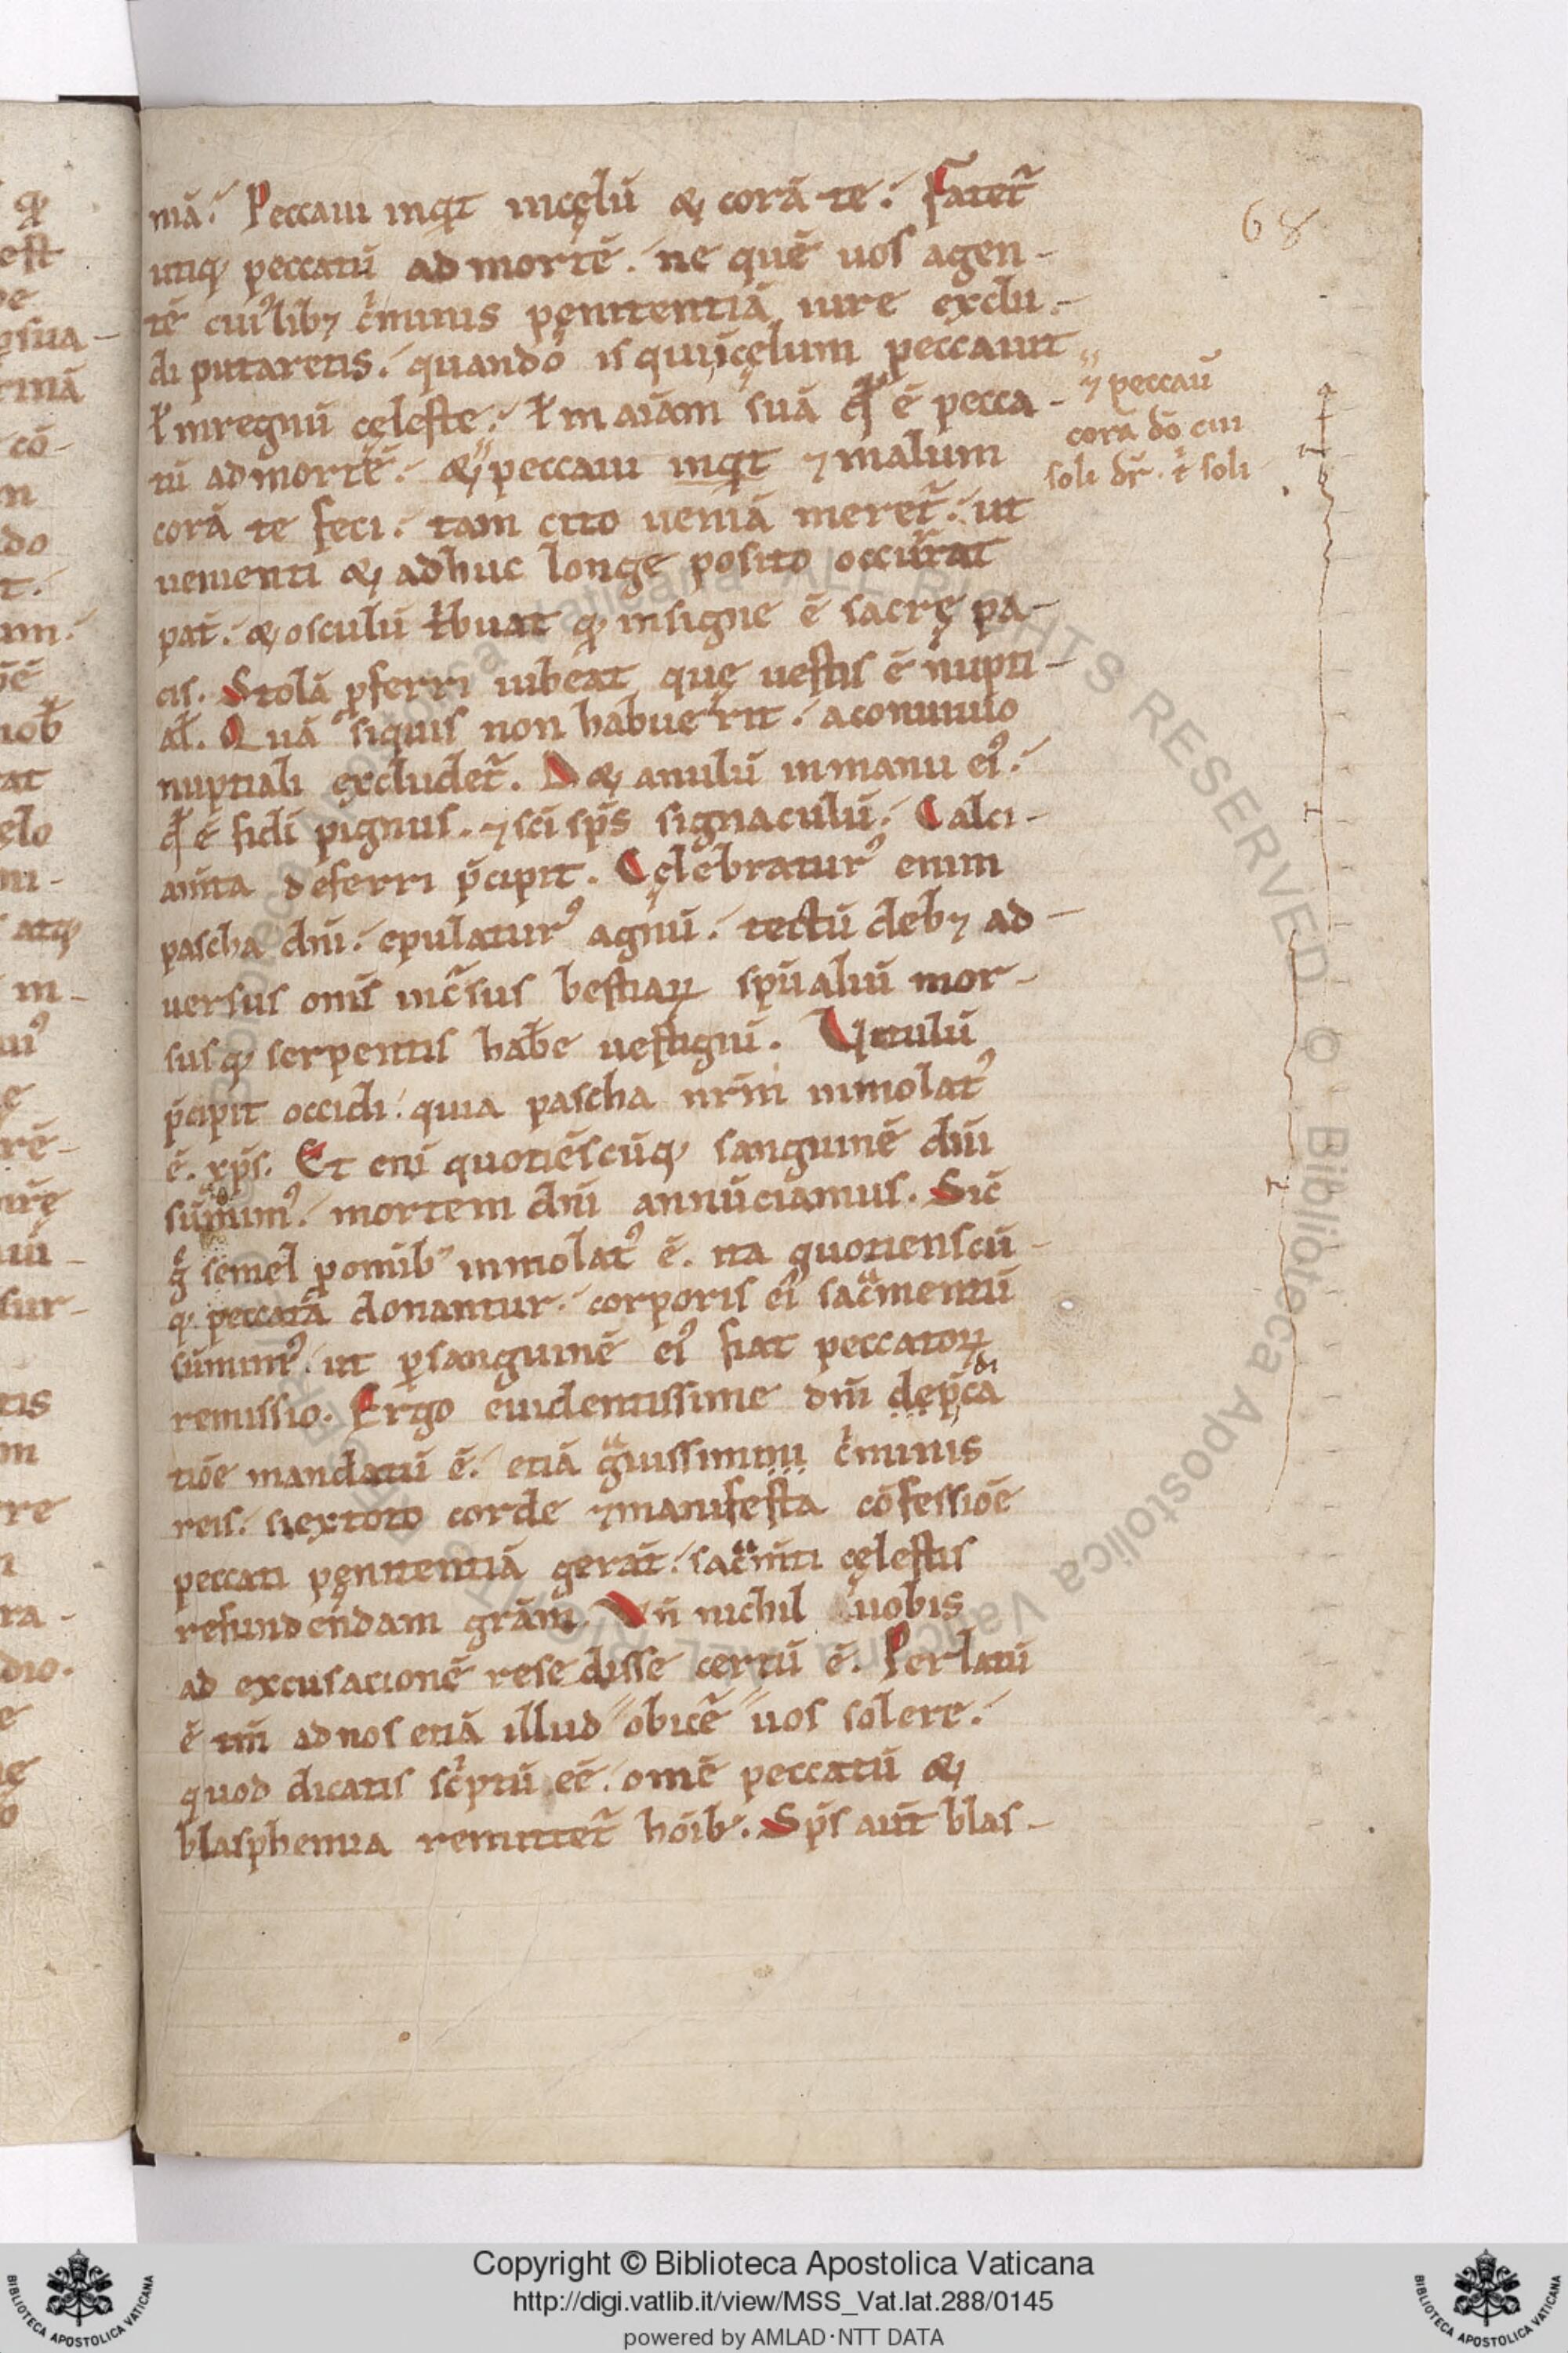 mã. Peccaui inq̇t incęlũ & corã te. Fatet᷑
utiq; peccatũ ad mortẽ. ne quẽ uos agen-
tẽ cui᷒lib; c̾minis pęnitentiã iure exclu-
di putaretis. quando is qui ĩ cęlum peccauit
ł inregnũ cęleste. ł in aĩam suã qđ ẽ pecca-
tũ ad mortẽ. & peccaui inq̇t ⁊ malum
corã te feci. tam cito ueniã meret᷑. ut
uenienti & adhuc longe posito occurrat
pat̃. & osculũ t̾buat qḋ insigne ẽ sacrę pa-
cis. Stolã ꝓferri iubeat quę uestis ẽ nupti-
al̃. Quã siquis non habuerit. a conuiuio
nuptiali excludet᷑. D& anulũ inmanu ei᷒.
qđ ẽ fidi pignus. ⁊ sc̃i sp̃s signaculũ. Calci-
am̃ta deferri p̃cipit. Cęlebratur᷒ enim
pascha dñi. epulatur᷒ agnũ. tectũ deb; ad
uersus om̃s inc̃sus bestiaꝝ sp̃ualiũ mor-
susq; serpentis hab̃e uestigiũ. Vitulũ
p̃cipit occidi. quia pascha nr̃m inmolat᷒
ẽ. xp̃s. Et eni quotiẽscũq; sanguinẽ dñi
sũmim᷒. mortem dñi annũciamus. Sic̃
g̊ semel ꝓ omĩb; inmolat᷒ ẽ. ita quotienscũ-
q; peccata donantur. corporis ei᷒ sac̃mentũ
sũmim᷒. ut ꝑ sanguinẽ ei᷒ fiat peccatoꝝ
remissio. Ergo euidentissime dñi dęp̃ca
di
tiõe mandatũ ẽ. etiã g̃uissimi c̾minis
reis. si ex toto corde ⁊ manifesta cõfessiõe
peccati pęnitentiã gerãt. sac̃m̃ti cęlestis
refundendam gr̃am. Vñ nichil uobis
ad excusacionẽ resedisse certũ ẽ. Perlatũ
ẽ tm̃ ad nos etiã illud obicẽ uos solere.
quod dicatis sc̾ptũ eẽ. om̃e peccatũ &
blasphemia remittet᷑ hõib;. Sp̃s aut̃ blas-
⁊ peccaũ
corã dõ cui
soli dr̃. t̾ soli
68
Copyright © Biblioteca Apostolica Vaticana
http://digi.vatlib.it/view/MSS_Vat.lat.288/0145
powered by AMLAD·NTT DATA
BIBLIOTECA APOSTOLICA VATICANA
BIBLIOTECA APOSTOLICA VATICANA